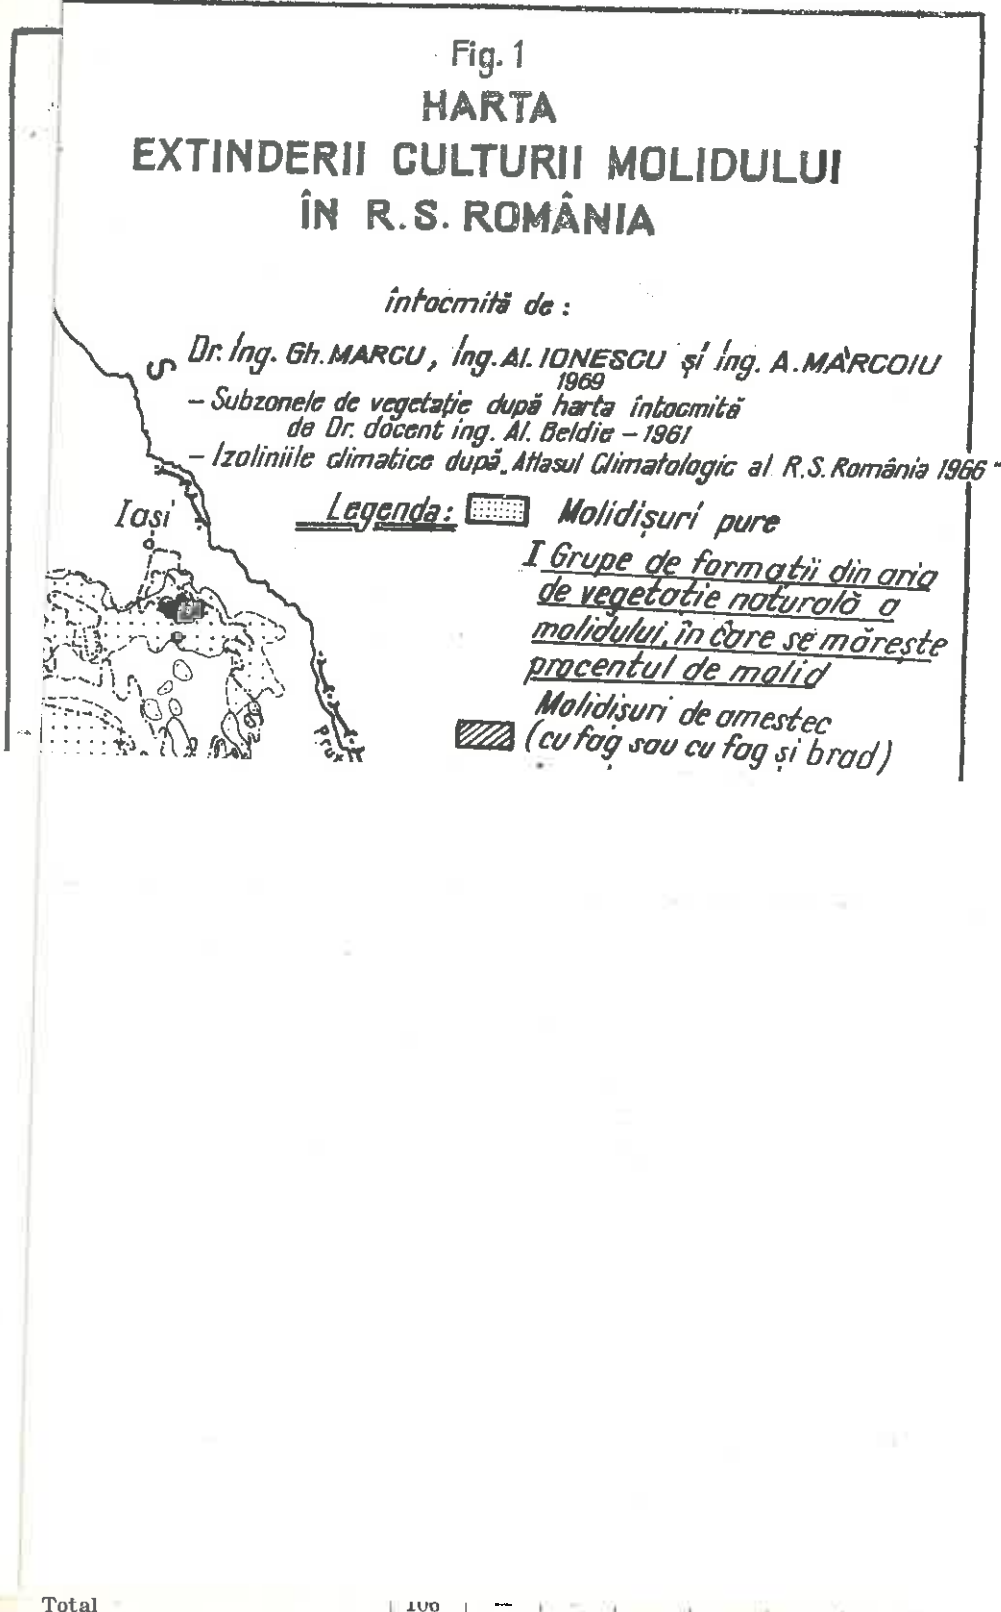 Fig. 1
HARTA
EXTINDERII CULTURII MOLIDULUI
ÎN R.S. ROMÂNIA
întocmită de :
Dr. Ing. Gh. MARCU, Ing. Al. IONESCU și ing. A. MARCOIU
1969
– Subzonele de vegetație după harta întocmită
de Dr. docent ing. Al. Beldie – 1961
– Izoliniile climatice după „Atlasul Climatologic al R.S. România 1966"
Iași
Legenda: Molidișuri pure
I Grupe de formații din aria
de vegetație naturală a
molidului, în care se mărește
procentul de molid
Molidișuri de amestec
(cu fag sau cu fag și brad)
Prut
Total